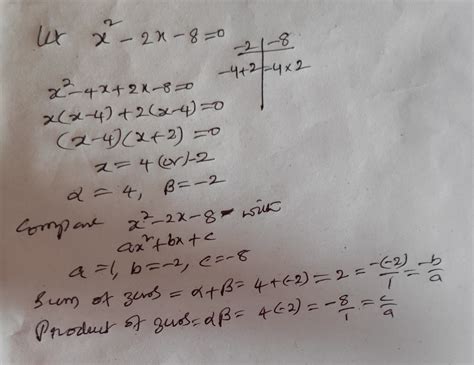 Let x² - 2x - 8 = 0
-2 | -8
-4+2 | -4×2
x² - 4x + 2x - 8 = 0
x(x-4) + 2(x-4) = 0
(x-4)(x+2) = 0
x = 4 (or) -2
α = 4, β = -2
Compare x² - 2x - 8 with
ax² + bx + c
a = 1, b = -2, c = -8
Sum of zeros = α+β = 4+(-2) = 2 = -(-2)/1 = -b/a
Product of zeros = αβ = 4(-2) = -8/1 = c/a